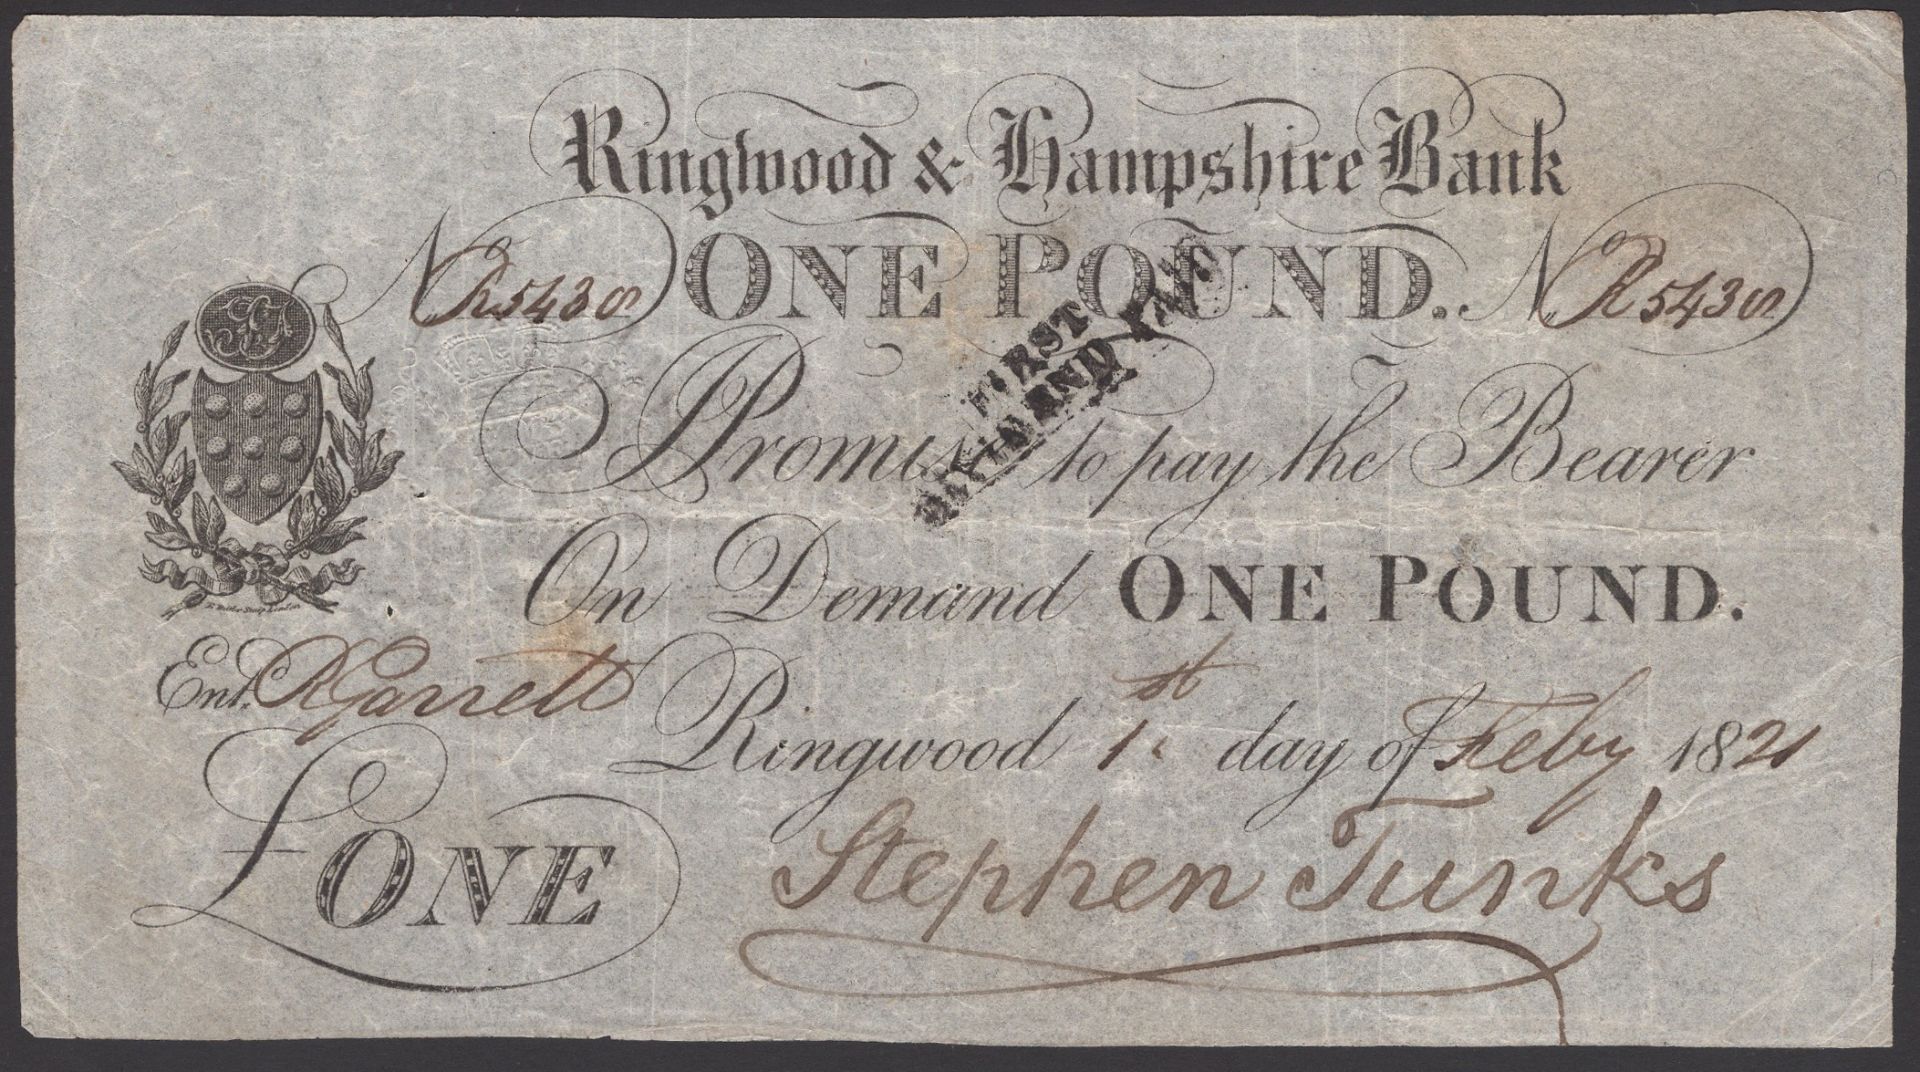 Ringwood & Hampshire Bank
No R5438 ONE POUND. No R5438
FIRST
DIVIDEND PAID
I Promise to pay the Bearer
On Demand ONE POUND.
Ent. R Garrett
Ringwood 1st day of Feby 1821
£ONE
Stephen Tunks